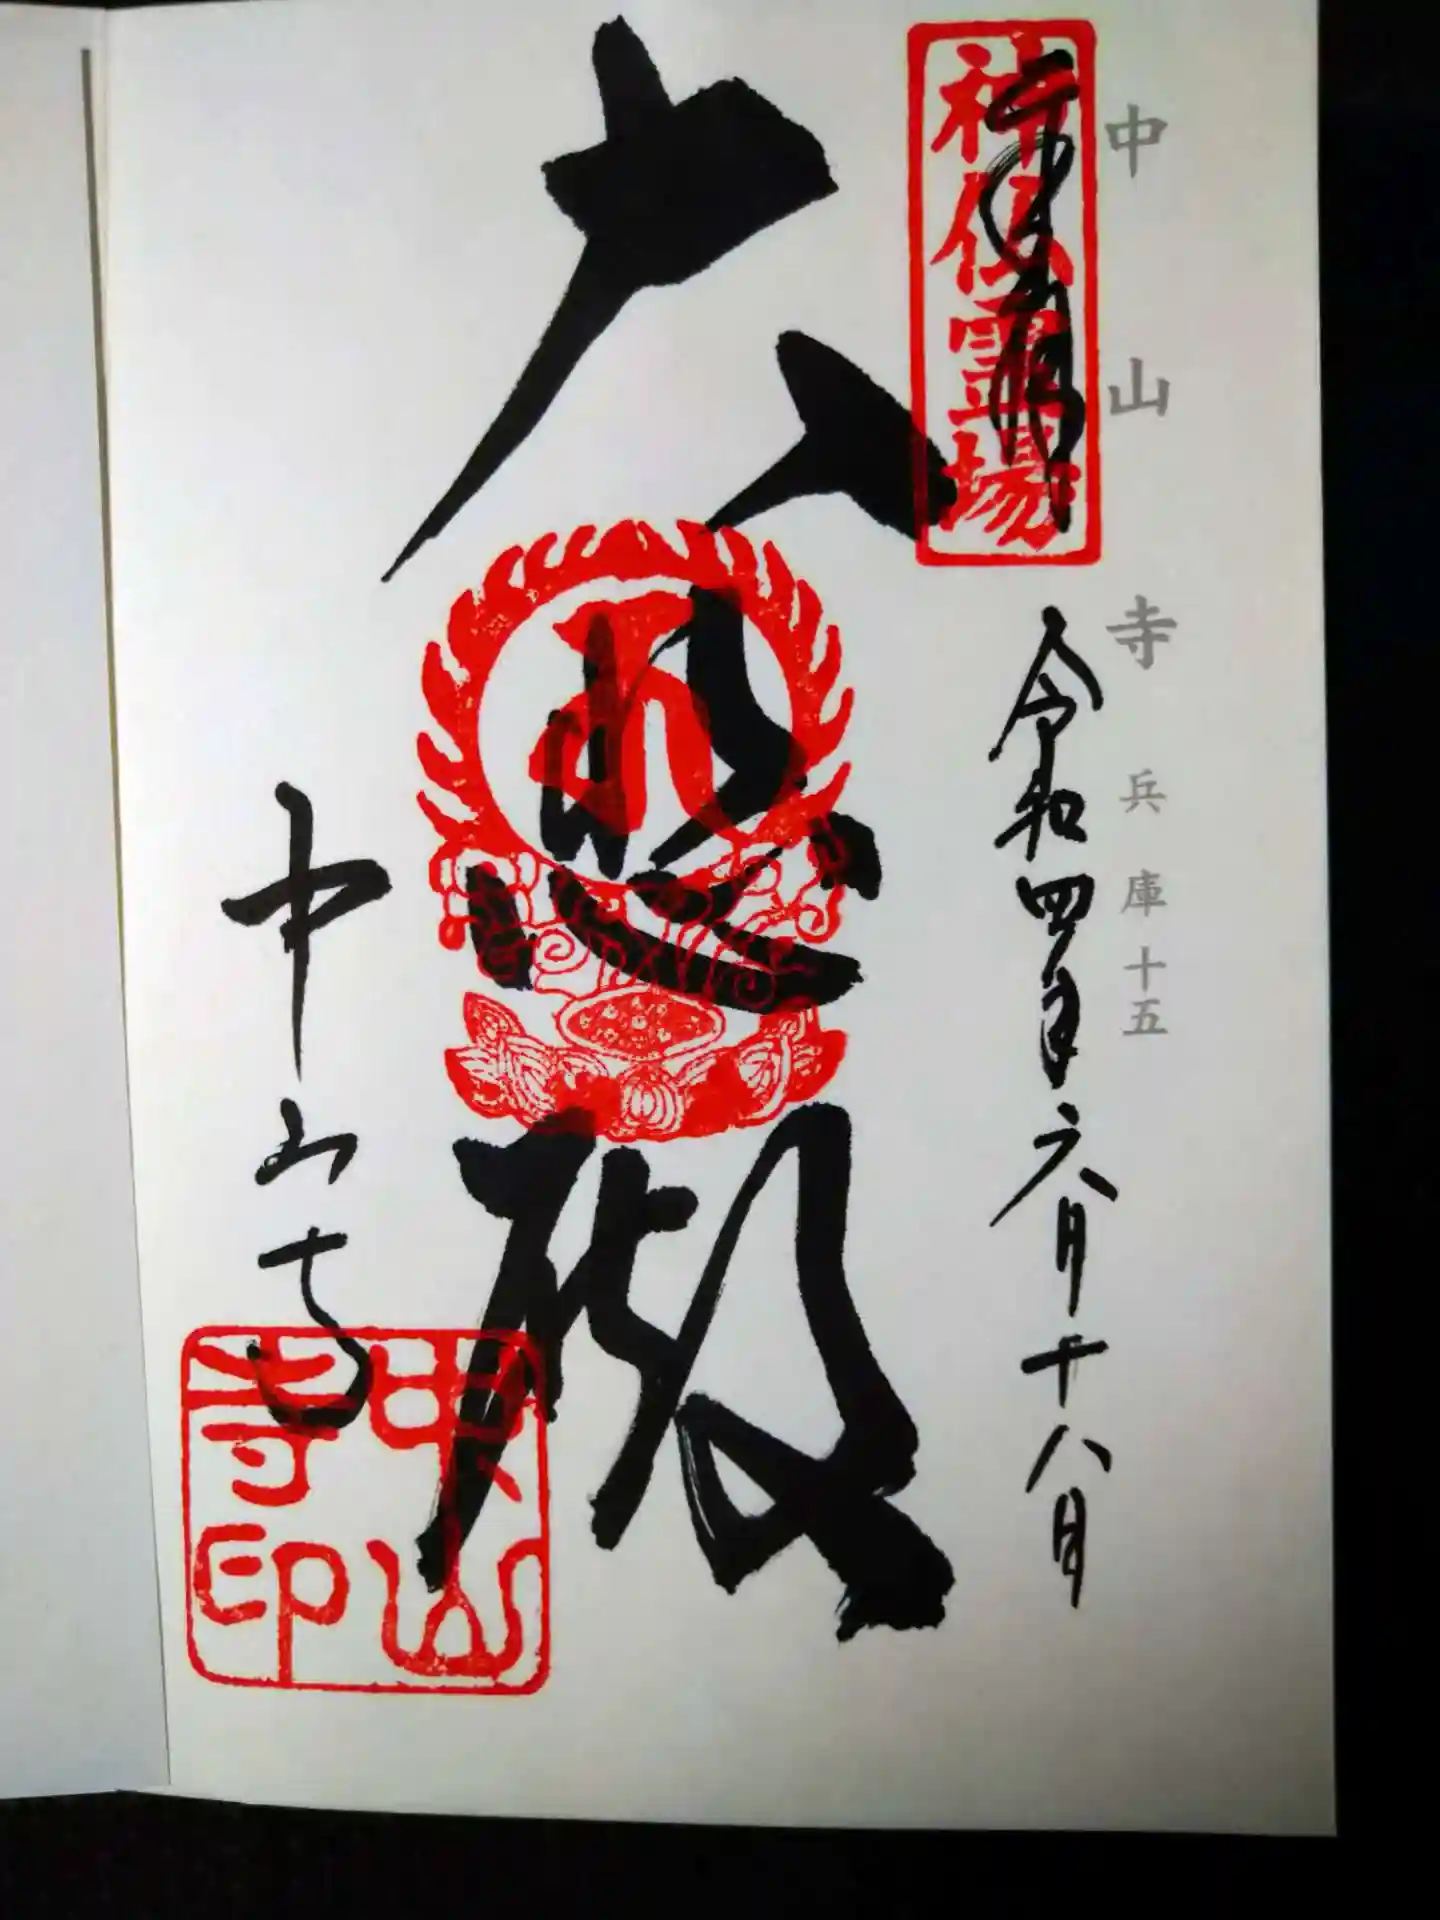 中山寺 兵庫十五
奉拝
神仏霊場
令和四年六月十八日
大悲殿
中山寺
中山寺印